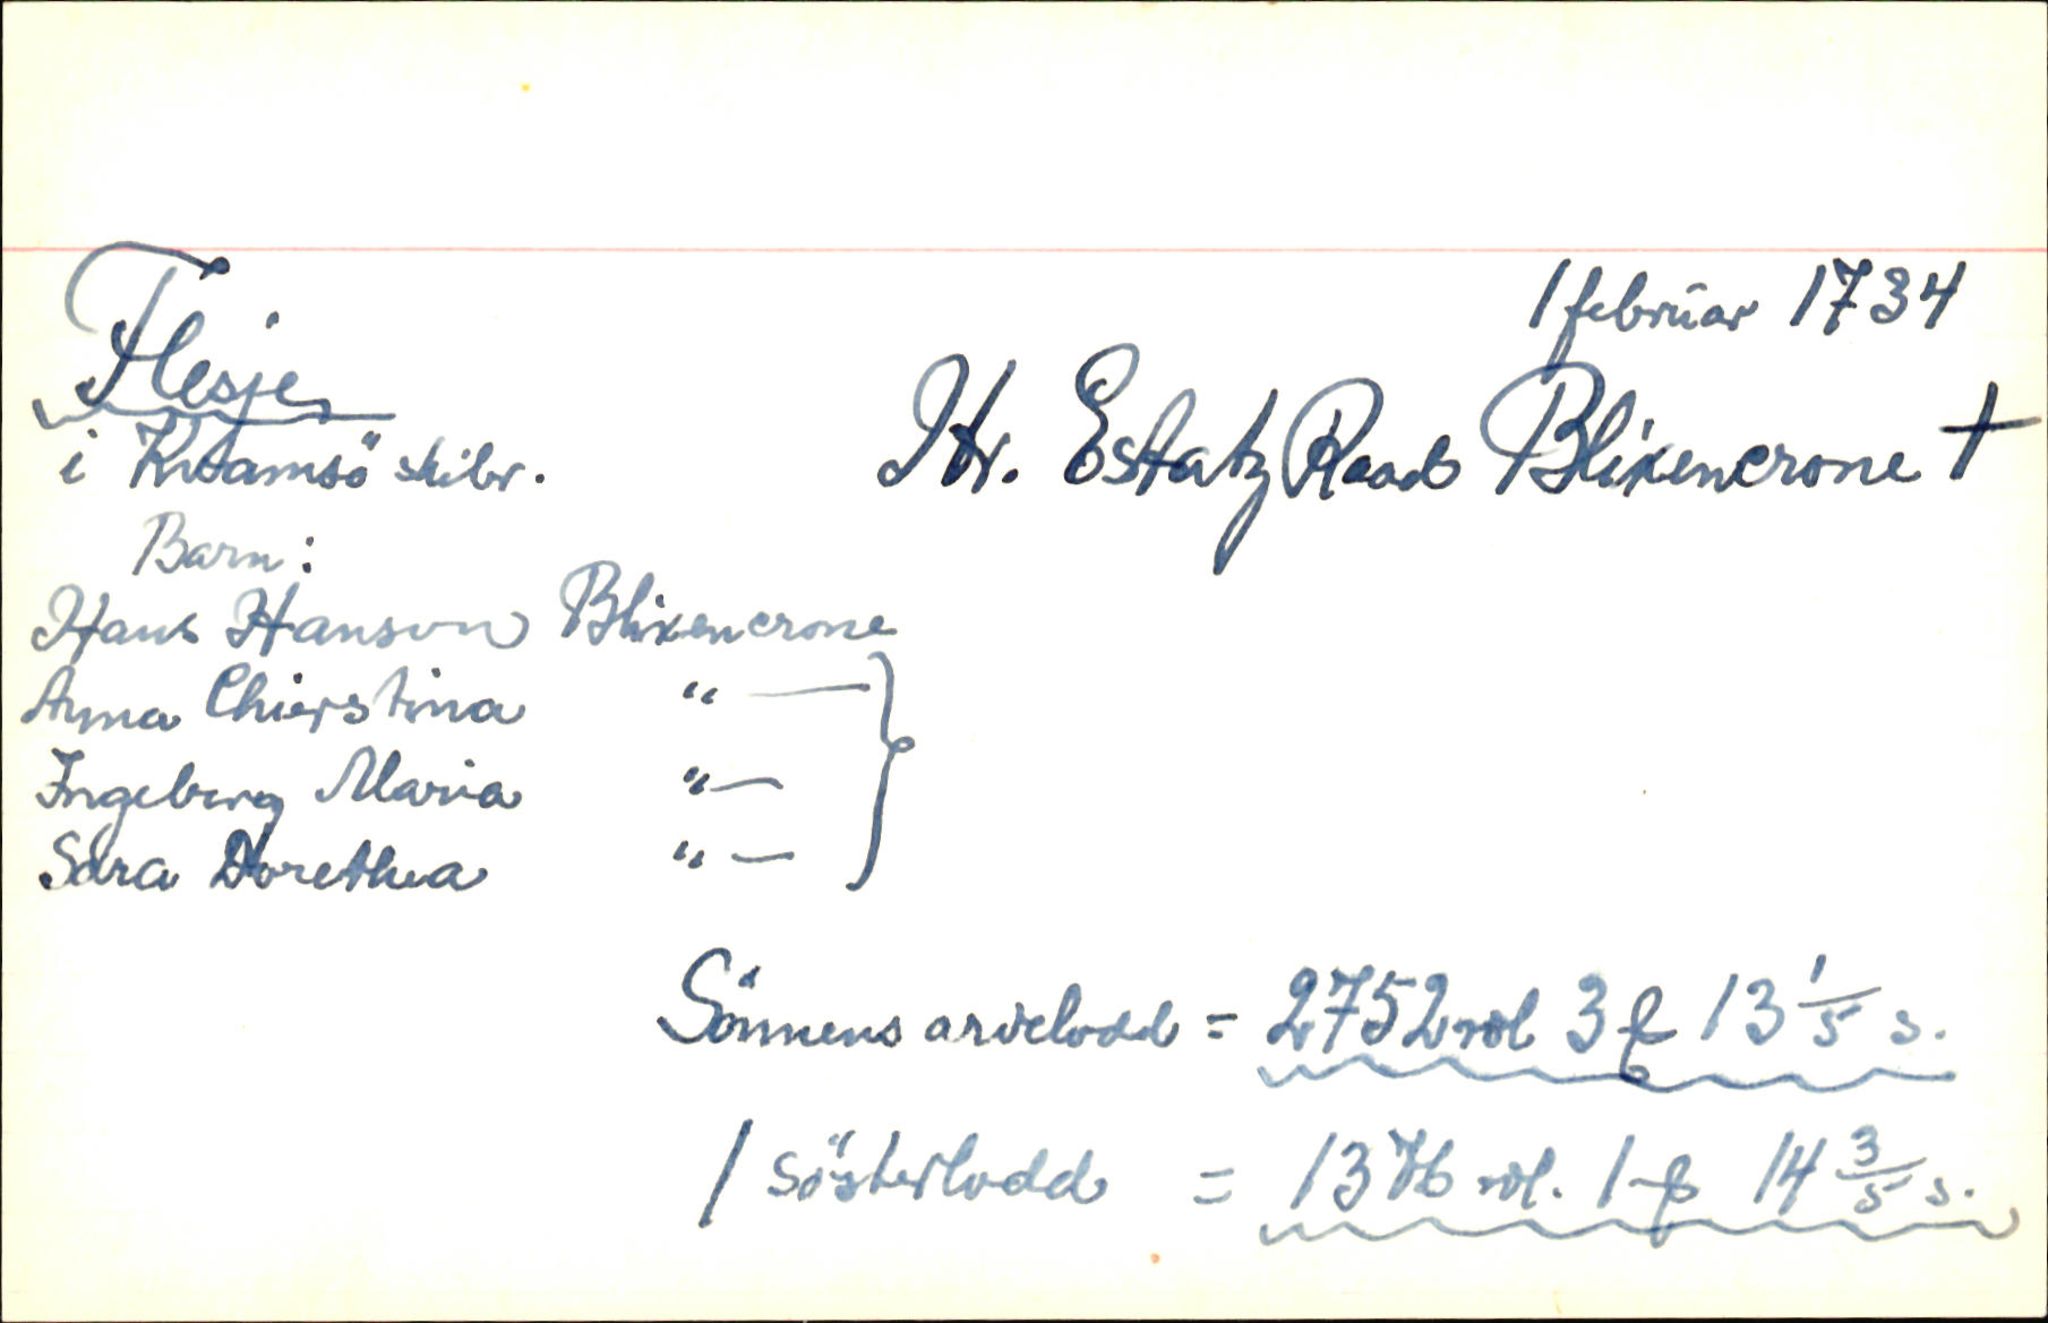 1 februar 1734
Flesje
Hr. Estatz Raad Blixencrone †
i Kvamsö skibr.
Barn:
Hans Hanson Blixencrone
Anna Chierstina " —
Ingeborg Maria " —
Sara Dorethea " —
Sönnens arvelodd = 2752 rdl 3 ₰ 13 1/5 s.
1 sösterlodd = 1376 rdl. 1 ₰ 14 3/5 s.